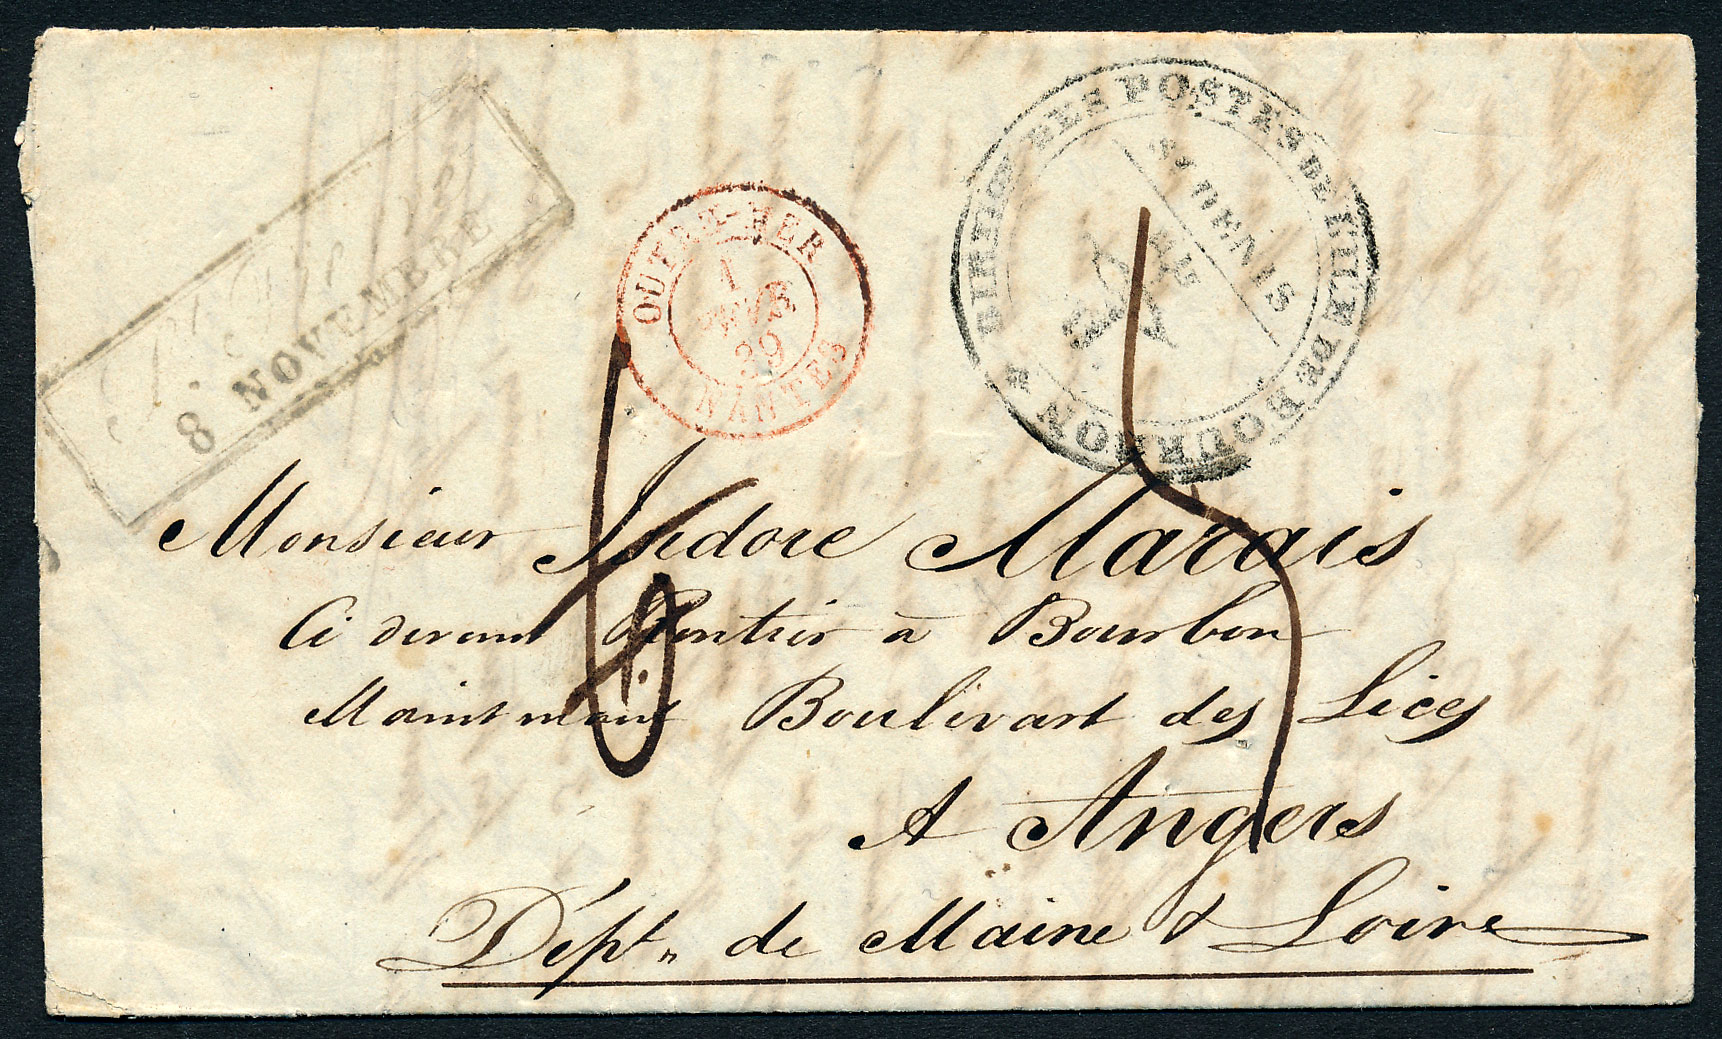 8 NOVEMBRE
OUTRE-MER
1
39
NANTES
DES POSTES DE L'ILE DE BOURBON
ST DENIS
Monsieur Isidore Marais
Ci devant Rentier à Bourbon
Maintenant Boulivart des Lices
A Angers
Dépt. de Maine & Loire